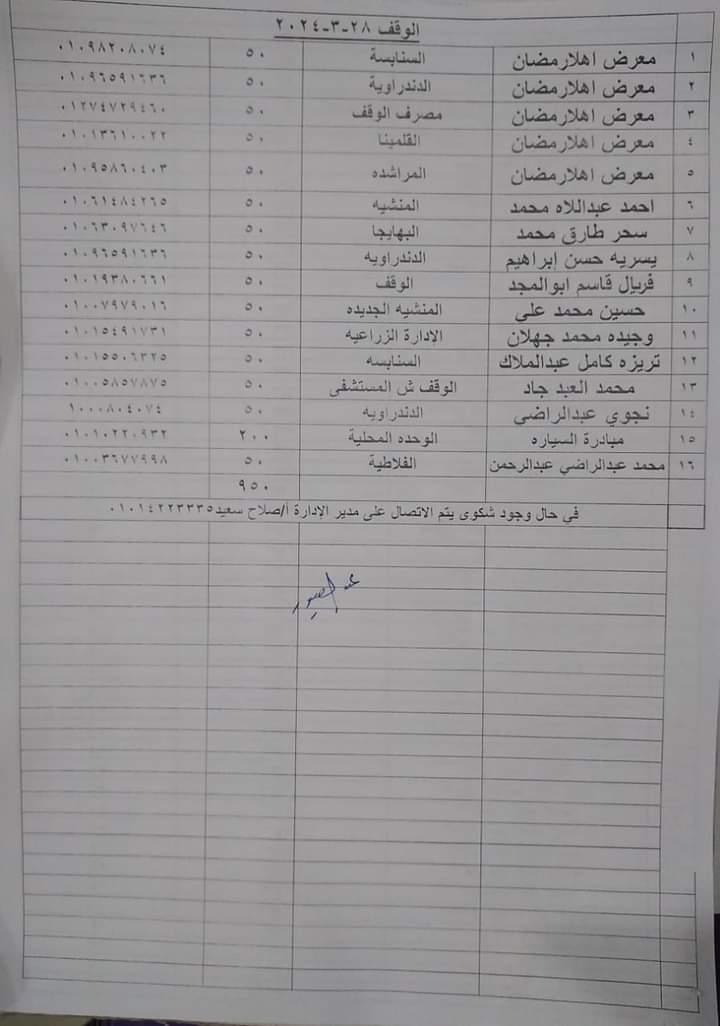 الوقف ٢٨-٣-٢٠٢٤
١ معرض اهلارمضان السنابسة ٥٠ ٠١٠٩٨٢٠٨٠٧٤
٢ معرض اهلارمضان الدندراوية ٥٠ ٠١٠٩٦٥٩١٦٣٦
٣ معرض اهلارمضان مصرف الوقف ٥٠ ٠١٢٧٤٧٢٩٤٦٠
٤ معرض اهلارمضان القلمينا ٥٠ ٠١٠١٣٦١٠٠٢٢
٥ معرض اهلارمضان المراشده ٥٠ ٠١٠٩٥٨٦٠٤٠٣
٦ احمد عبداللاه محمد المنشيه ٥٠ ٠١٠٦١٤٨٤٢٦٥
٧ سحر طارق محمد البهايجا ٥٠ ٠١٠٦٣٠٩٧٦٤٦
٨ يسريه حسن إبراهيم الدندراويه ٥٠ ٠١٠٩٦٥٩١٦٣٦
٩ فريال قاسم ابوالمجد الوقف ٥٠ ٠١٠١٩٣٨٠٦٦١
١٠ حسين محمد على المنشيه الجديده ٥٠ ٠١٠٠٧٩٧٩٠١٦
١١ وجيده محمد جهلان الإدارة الزراعيه ٥٠ ٠١٠١٥٤٩١٧٣١
١٢ تريزه كامل عبدالملاك السنابسه ٥٠ ٠١٠١٥٥٠٦٣٢٥
١٣ محمد العبد جاد الوقف ش المستشفى ٥٠ ٠١٠٠٥٨٥٧٨٧٥
١٤ نجوي عبدالراضي الدندراويه ٥٠ ١٠٠٠٨٠٤٠٧٤
١٥ مبادرة السياره الوحده المحلية ٢٠٠ ٠١٠١٠٢٢٠٩٣٢
١٦ محمد عبدالراضي عبدالرحمن القلاطية ٥٠ ٠١٠٠٣٦٧٧٩٩٨
٩٥٠
في حال وجود شكوى يتم الاتصال على مدير الإدارة أ/صلاح سعيد٠١٠١٤٢٢٣٣٣٥